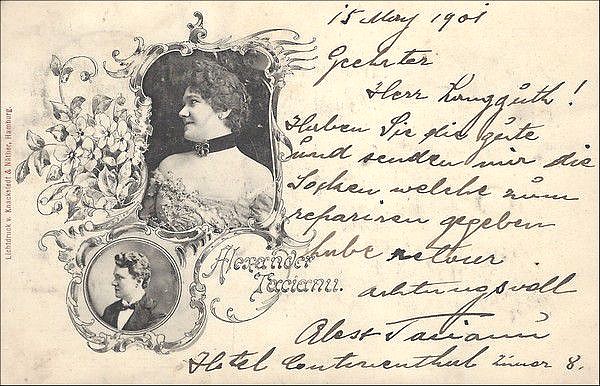 15 May 1901
Geehrter
Herr Kongguth!
Haben Sie die güte
ünd senden mir die
Sachen welche züm
reparirin gegeben
habe retour
achtungsvoll
Alex Tacianü
Hotel Continenthal Zimer 8.
Alexander
Tacianu.
Lichtdruck v. Knackstedt & Näther, Hamburg.